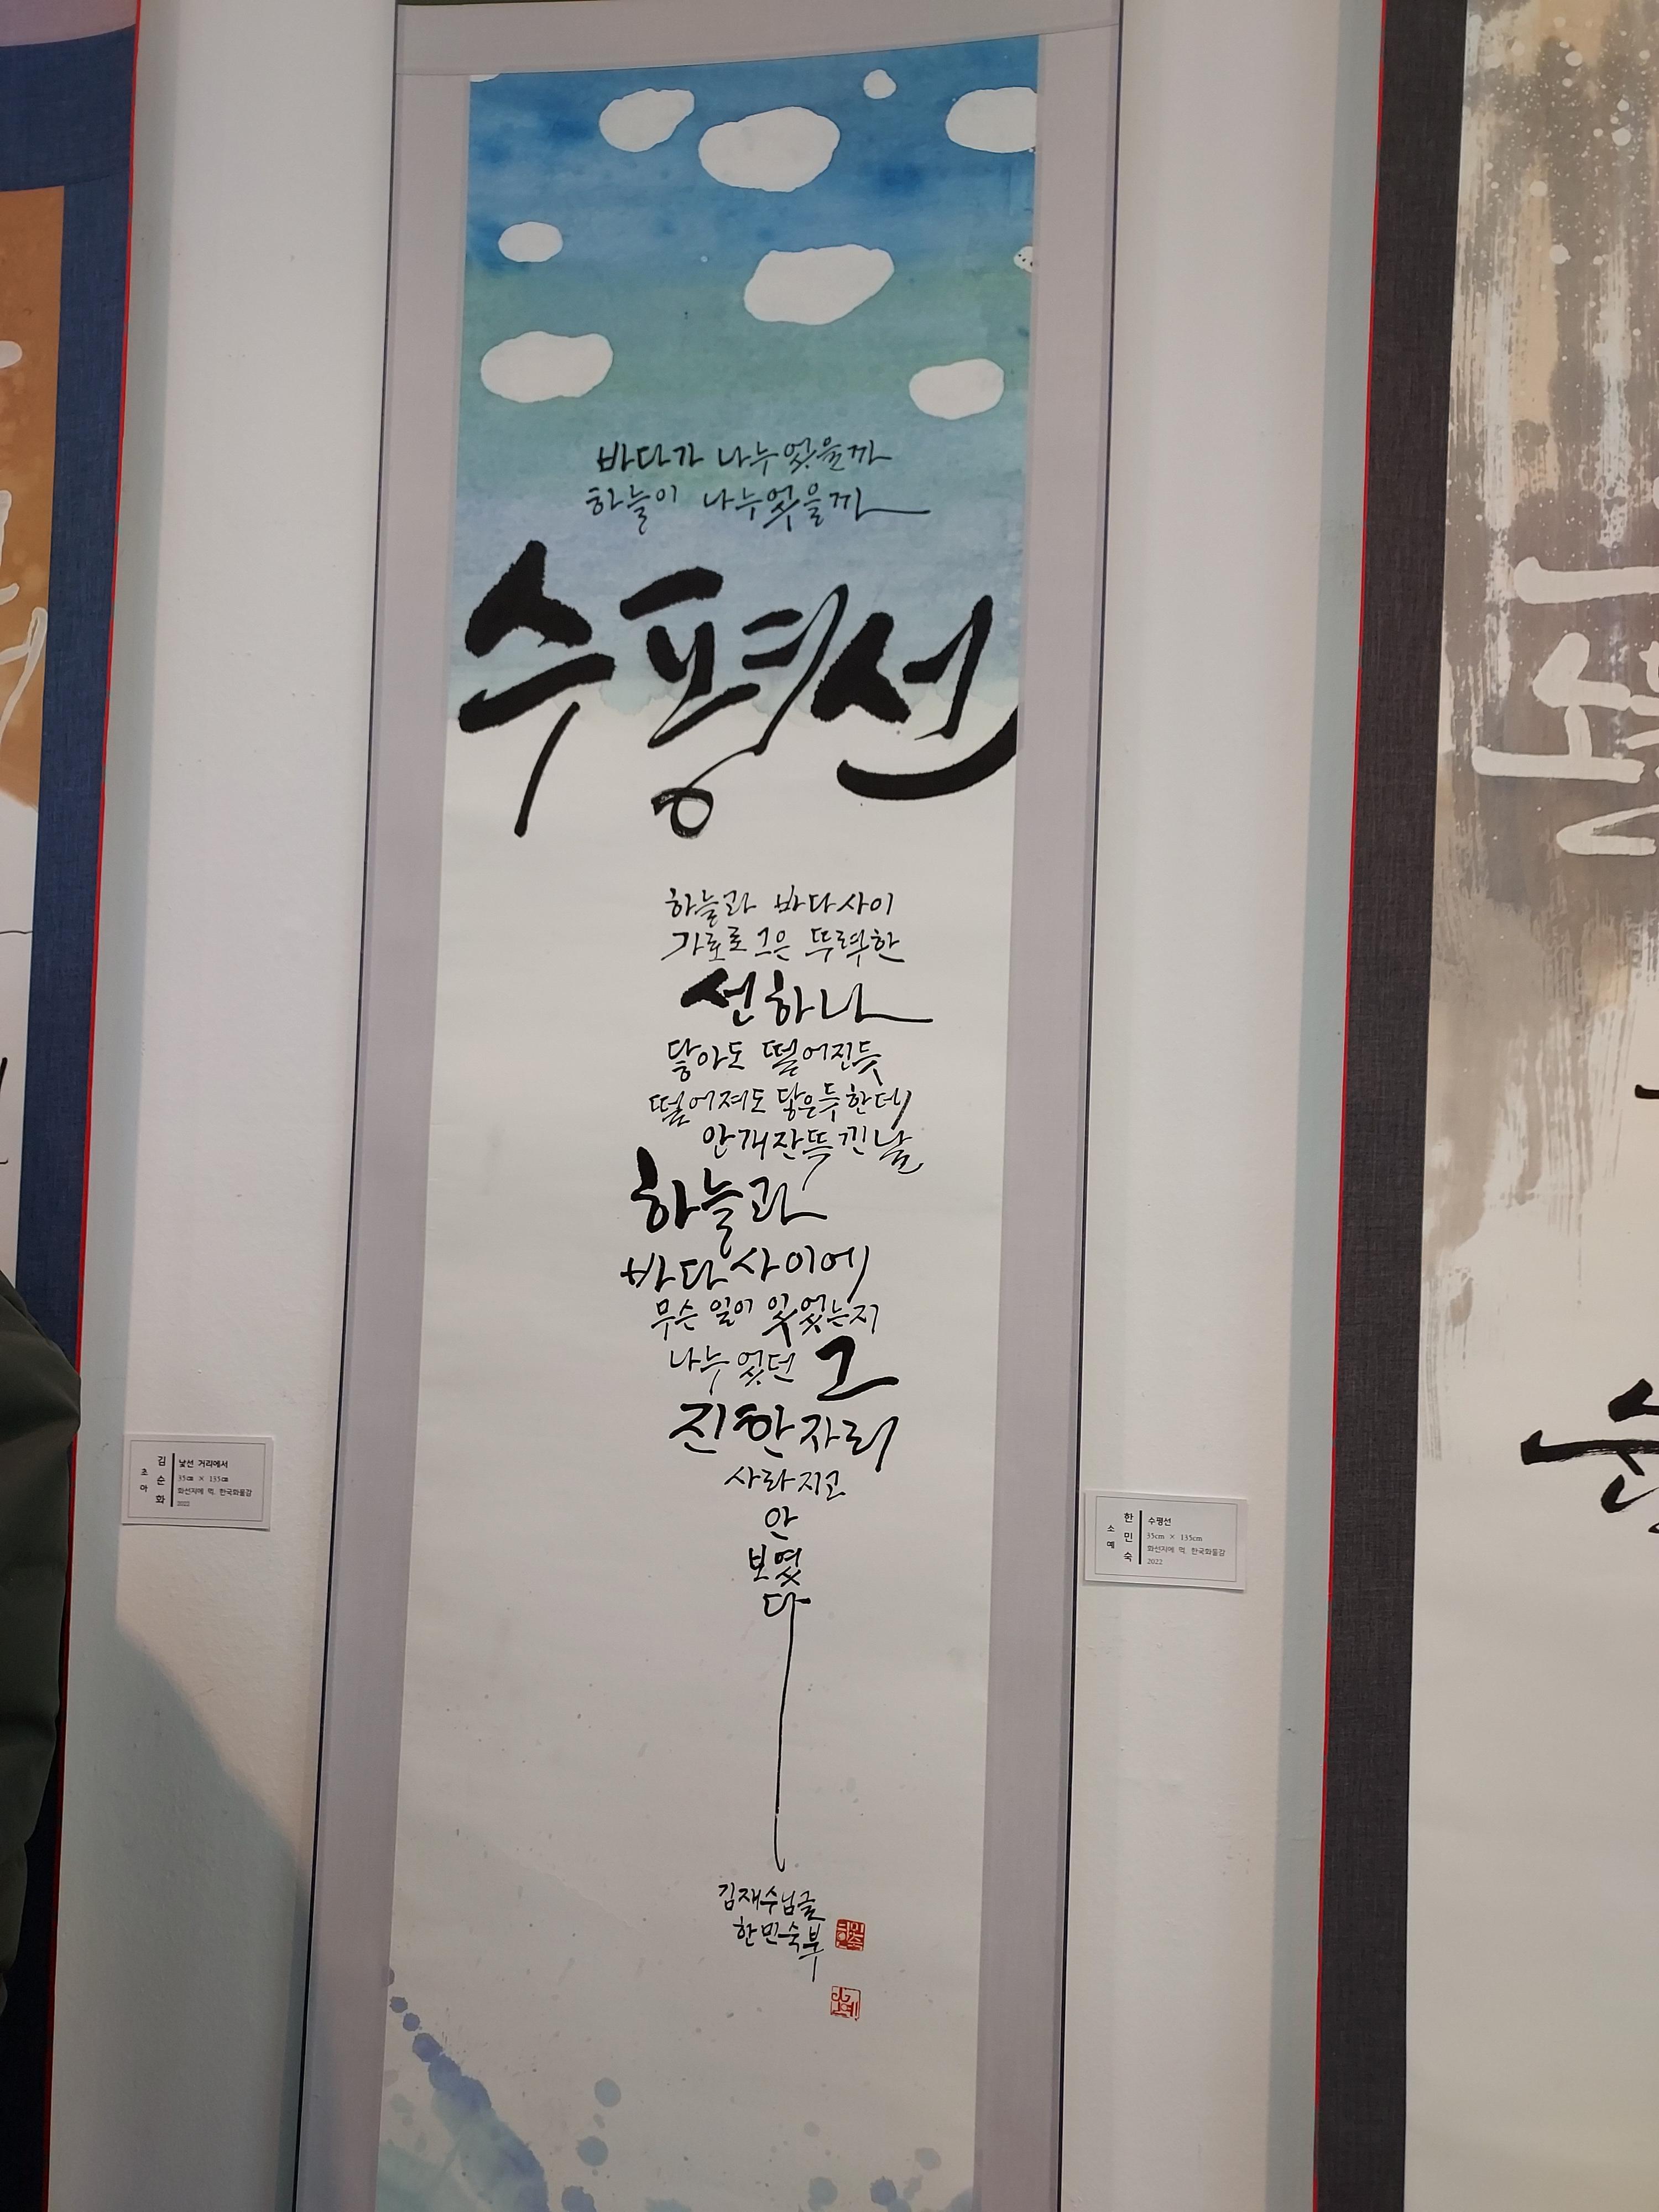 바다가 나누었을까
하늘이 나누었을까
수평선
하늘과 바다사이
가로로 그은 뚜렷한
선하나
닿아도 떨어진듯
떨어져도 닿은듯한데
안개잔뜩 낀날
하늘과
바다사이에
무슨 일이 있었는지
나누었던 그
진한자리
사라지고
안
보였
다
김재수님글
한민숙부
김순화
초아
낯선 거리에서
35cm × 135cm
화선지에 먹, 한국화물감
2022
한민숙
소예
수평선
35cm × 135cm
화선지에 먹, 한국화물감
2022